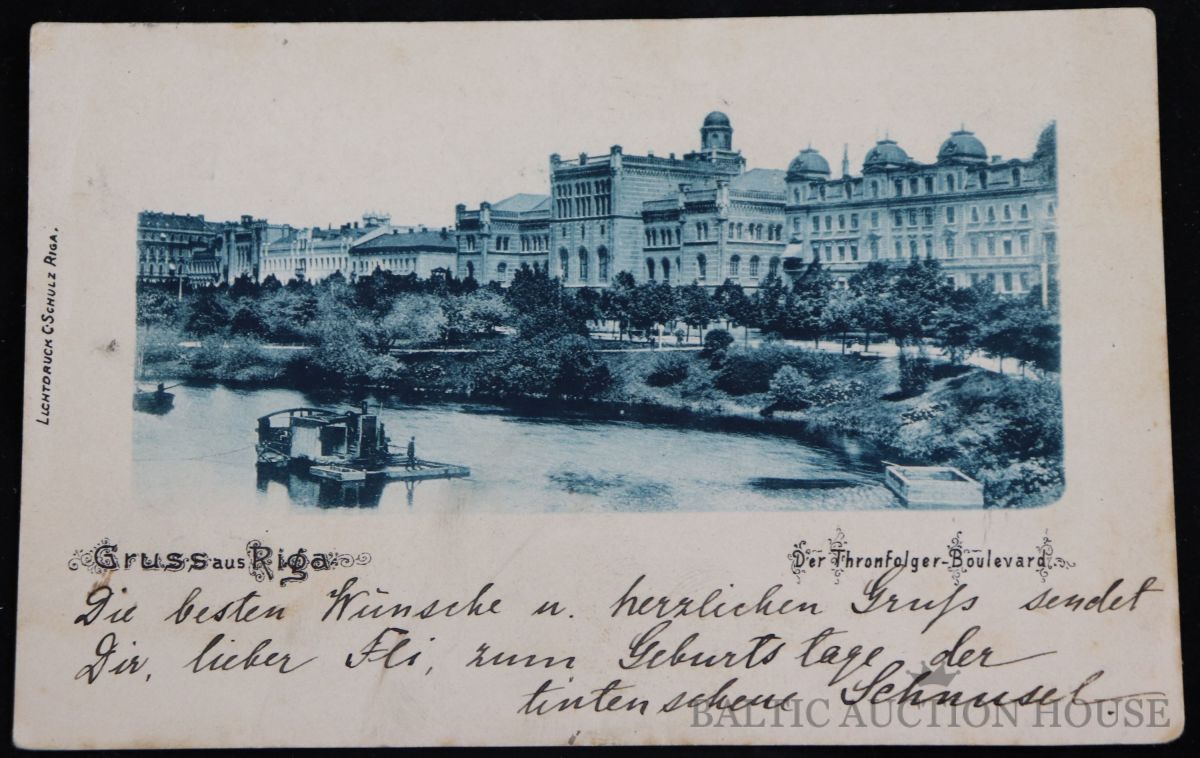 LICHTDRUCK C. SCHULZ RIGA.
Gruss aus Riga
Der Thronfolger-Boulevard
Die besten Wünsche u. herzlichen Gruß sendet
Dir, lieber Fli, zum Geburtstage der
tintenscheue Schnusel.
BALTIC AUCTION HOUSE